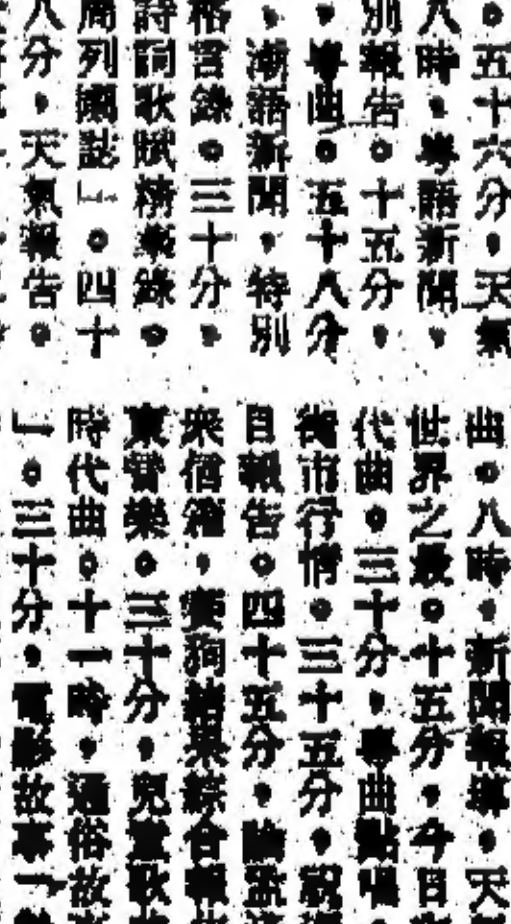 。五十六分，天氣
八時，粵語新聞，
別報告。十五分，
，粵曲。五十八分
，潮語新聞，特別
格言錄。三十分，
詩詞歌賦精華錄。
周列國誌」。四十
八分，天氣報告。
曲。八時，新聞報導，天
世界之最。十五分，今日
代曲。三十分，粵曲點唱
市行情。三十五分，
目報告。四十五分，
眾信箱，賽狗結果綜合報
東音樂。三十分，兒童歌
時代曲。十一時，通俗故
」。三十分，電影故事